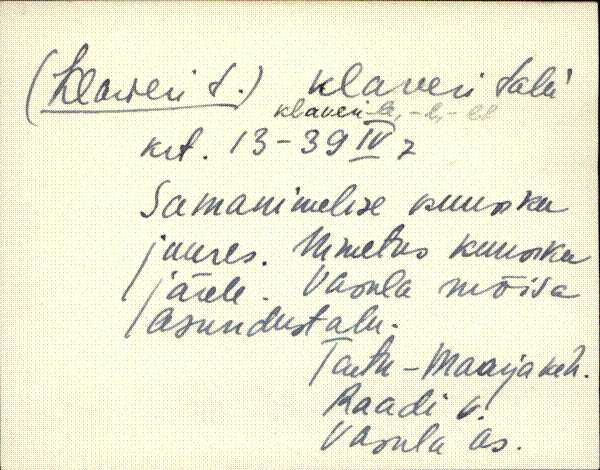 (Klaveri t.) klaveri talu
klaveri -le, -l, -lt
krt. 13-39 IV z
Samanimelise kuuriku
juures. Nimetus kuuriku
järele. Vasula mõisa
asundustalu.
Tartu-Maarja keh.
Raadi v.
Vasula as.